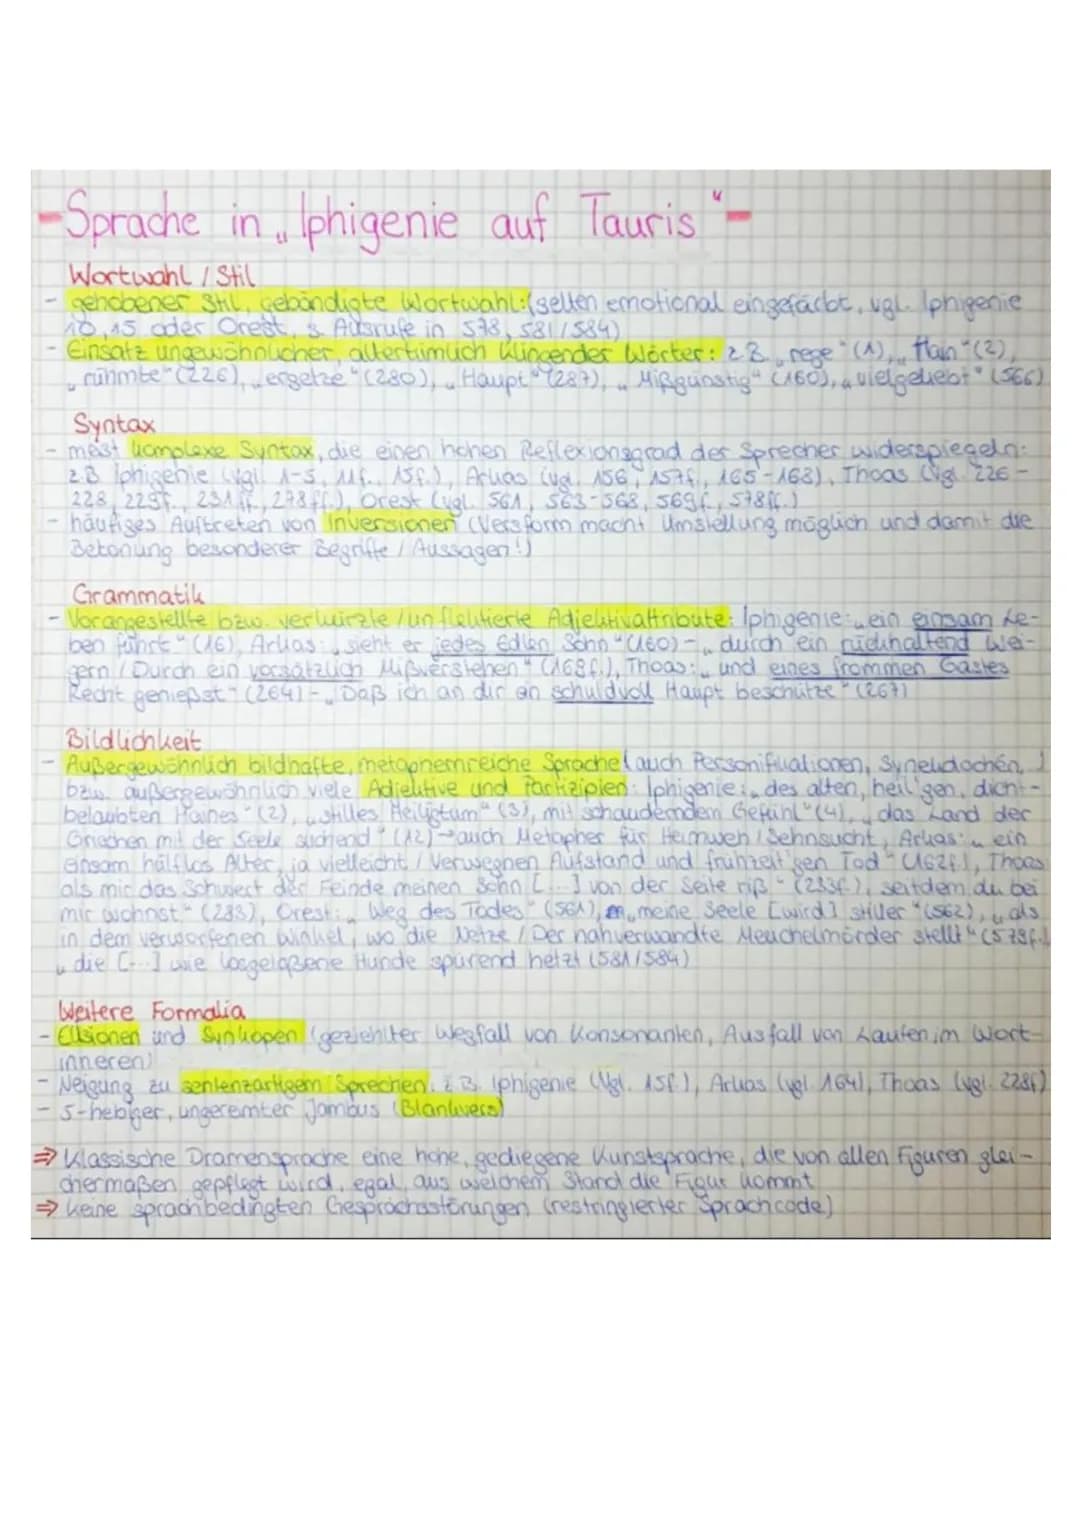 -Sprache in „Iphigenie auf Tauris"-
Wortwahl / Stil
- gehobener Stil, gebändigte Wortwahl: (selten emotional eingefärbt, vgl. Iphigenie
10,15 oder Orest, s. Ausrufe in 578, 581/584)
- Einsatz ungewöhnlicher, altertümlich klingender Wörter: z.B. „rege" (1), „Hain" (2),
„rühmte" (226), „ergetze" (280), „Haupt" (287), „Mißgünstig" (160), „vielgeliebt" (566)
Syntax
- meist komplexe Syntax, die einen hohen Reflexionsgrad der Sprecher widerspiegeln:
z.B. Iphigenie (vgl. 1-5, 11f., 15f.), Arkas (vgl. 156, 157f., 165-168), Thoas (vgl. 226-
228, 229f., 231ff., 278ff.), Orest (vgl. 561, 563-568, 569f., 578ff.)
- häufiges Auftreten von Inversionen (Versform macht Umstellung möglich und damit die
Betonung besonderer Begriffe / Aussagen!)
Grammatik
- Vorangestellte bzw. verkürzte / unflektierte Adjektivattribute: Iphigenie: „ein einsam Le-
ben führt" (16), Arkas: „sieht er jedes Edlen Sohn" (160) - „durch ein rückhaltend Wei-
gern / Durch ein vorsätzlich Mißverstehen" (168f.), Thoas: „und eines frommen Gastes
Recht genießst" (264) - „Daß ich an dir ein schuldvoll Haupt beschütze" (267)
Bildlichkeit
- Außergewöhnlich bildhafte, metaphernreiche Sprache (auch Personifikationen, Synekdochen, )
bzw. außergewöhnlich viele Adjektive und Partizipien: Iphigenie: „des alten, heil'gen, dicht-
belaubten Haines" (2), „stilles Heiligtum" (3), mit schauderndem Gefühl" (4), „das Land der
Griechen mit der Seele suchend" (12) → auch Metapher für Heimweh / Sehnsucht, Arkas: „ein
einsam hülflos Alter, ja vielleicht / Verwegnen Aufstand und frühzeit'gen Tod" (162f.), Thoas
als mir das Schwert der Feinde meinen Sohn [...] von der Seite riß" (233f.), seitdem du bei
mir wohnst" (283), Orest: „Weg des Todes" (561), „meine Seele [wird] stiller" (562), „als
in dem verworfenen Winkel, wo die Netze / Der nahverwandte Meuchelmörder stellt" (579f.)
„die [...] wie losgelaßene Hunde spürend hetzt (581/584)
Weitere Formalia
- Elisionen und Synkopen (gezielter Wegfall von Konsonanten, Ausfall von Lauten im Wort-
inneren)
- Neigung zu sentenzartigem Sprechen, z.B. Iphigenie (Vgl. 15f.), Arkas (vgl. 164), Thoas (vgl. 228f)
- 5-hebiger, ungereimter Jambus (Blankvers)
⇒ Klassische Dramensprache eine hohe, gediegene Kunstsprache, die von allen Figuren glei-
chermaßen gepflegt wird, egal, aus welchem Stand die Figur kommt
⇒ keine sprachbedingten Gesprächsstörungen (restringierter Sprachcode)